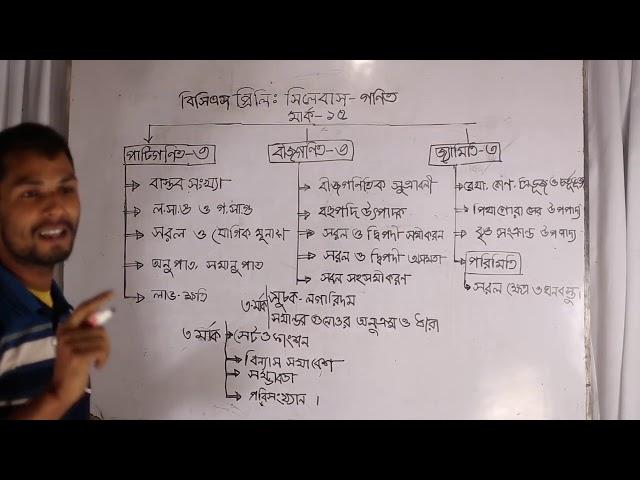 বিসিএস প্রিলি: সিলেবাস - গণিত
মার্ক - ১৫
পাটিগণিত - ৩
বাস্তব সংখ্যা
ল.সা.গু ও গ.সা.গু
সরল ও যৌগিক মুনাফা
অনুপাত, সমানুপাত
লাভ-ক্ষতি
বীজগণিত - ৩
বীজগণিতিক সূত্রাবলী
বহুপদি উৎপাদক
সরল ও দ্বিপদী সমীকরণ
সরল ও দ্বিপদী অসমতা
সরল সহসমীকরণ
জ্যামিতি - ৩
রেখা, কোণ, ত্রিভুজ ও চতুর্ভুজ
পিথাগোরাসের উপপাদ্য
বৃত্ত সংক্রান্ত উপপাদ্য
পরিমিতি
সরল ক্ষেত্র ও ঘনবস্তু।
৩ মার্ক
সূচক - লগারিদম
সমান্তর গুনোত্তর অনুক্রম ও ধারা
৩ মার্ক
সেট ও ফাংশন
বিন্যাস সমাবেশ
সম্ভাব্যতা
পরিসংখ্যান ।